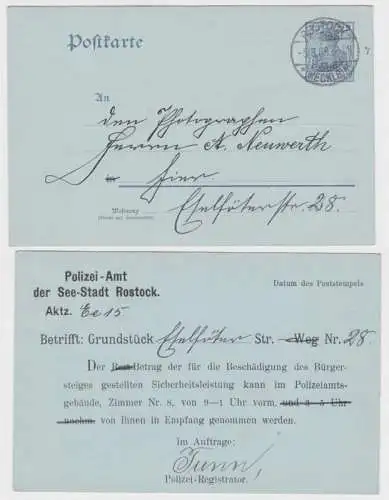 Postkarte
ROSTOCK
(MECKLB)
An
den Photographen
Herrn A. Neuwerth
hier.
Wohnung
Eselföterstr. 28.
Polizei-Amt
der See-Stadt Rostock.
Datum des Poststempels
Aktz. Ee 15
Betrifft: Grundstück Eselföter Str. Weg Nr. 28.
Der Rest-Betrag der für die Beschädigung des Bürger-
steiges gestellten Sicherheitsleistung kann im Polizeiamts-
gebäude, Zimmer Nr. 8, von 9—1 Uhr vorm. und 3—5 Uhr
nachm. von Ihnen in Empfang genommen werden.
Im Auftrage:
Polizei-Registrator.